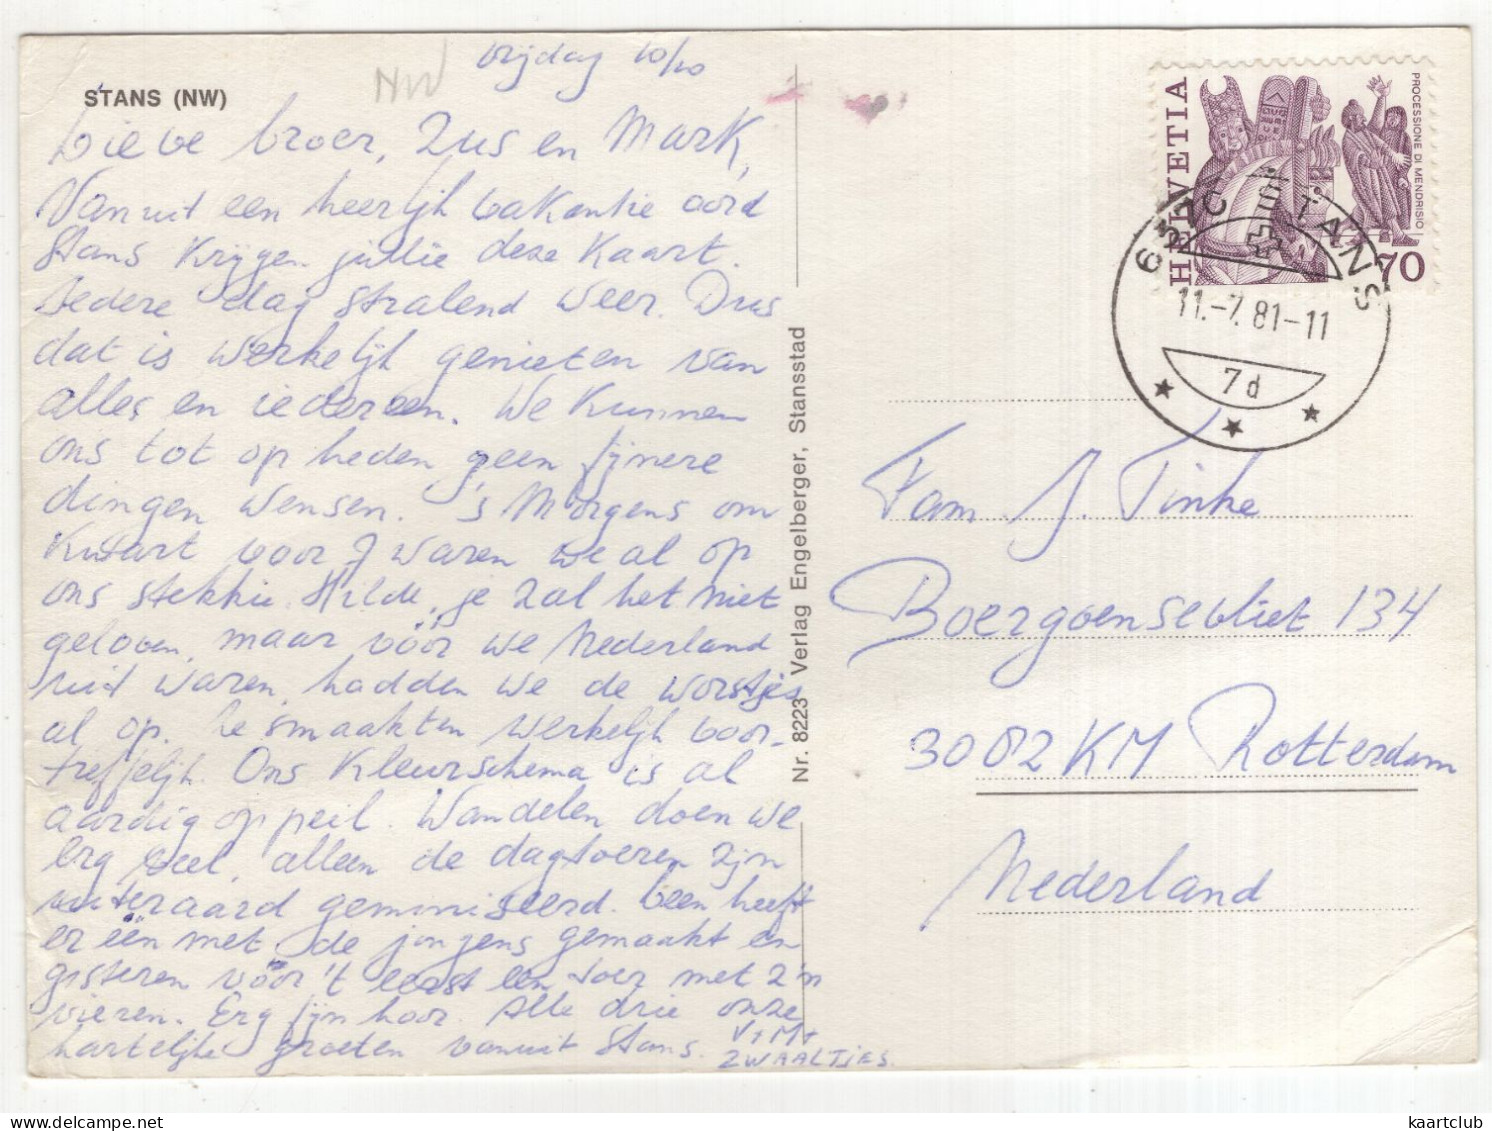 STANS (NW)
NW
Vrijdag 10/10
Lieve broer, Zus en Mark,
Vanuit een heerlijk vakantie oord
Stans krijgen jullie deze kaart.
Iedere dag stralend weer. Dus
dat is werkelijk genieten van
alles en iedereen. We kunnen
ons tot op heden geen fijnere
dingen wensen. 's Morgens om
kwart voor 7 waren we al op
ons stekkie. Hilde, je zal het niet
geloven, maar vóór we Nederland
uit waren, hadden we de worstjes
al op. Ze smaakten werkelijk voor-
treffelijk. Ons kleurschema is al
aardig op peil. Wandelen doen we
erg veel, alleen de dagtoeren zijn
uiteraard geminiseerd. Leen heeft
er één met de jongens gemaakt en
gisteren vóór 't eerst een toer met z'n
vieren. Erg fijn hoor. Alle drie onze
hartelijke groeten vanuit Stans.
V+M+
ZWAALTJES.
Nr. 8223 Verlag Engelberger, Stansstad
HELVETIA
PROCESSIONE DI MENDRISIO
70
STANS
11.-7.81-11
7d
Fam J. Tinke
Boergoensevliet 134
3082 KM Rotterdam
Nederland
kaartclub